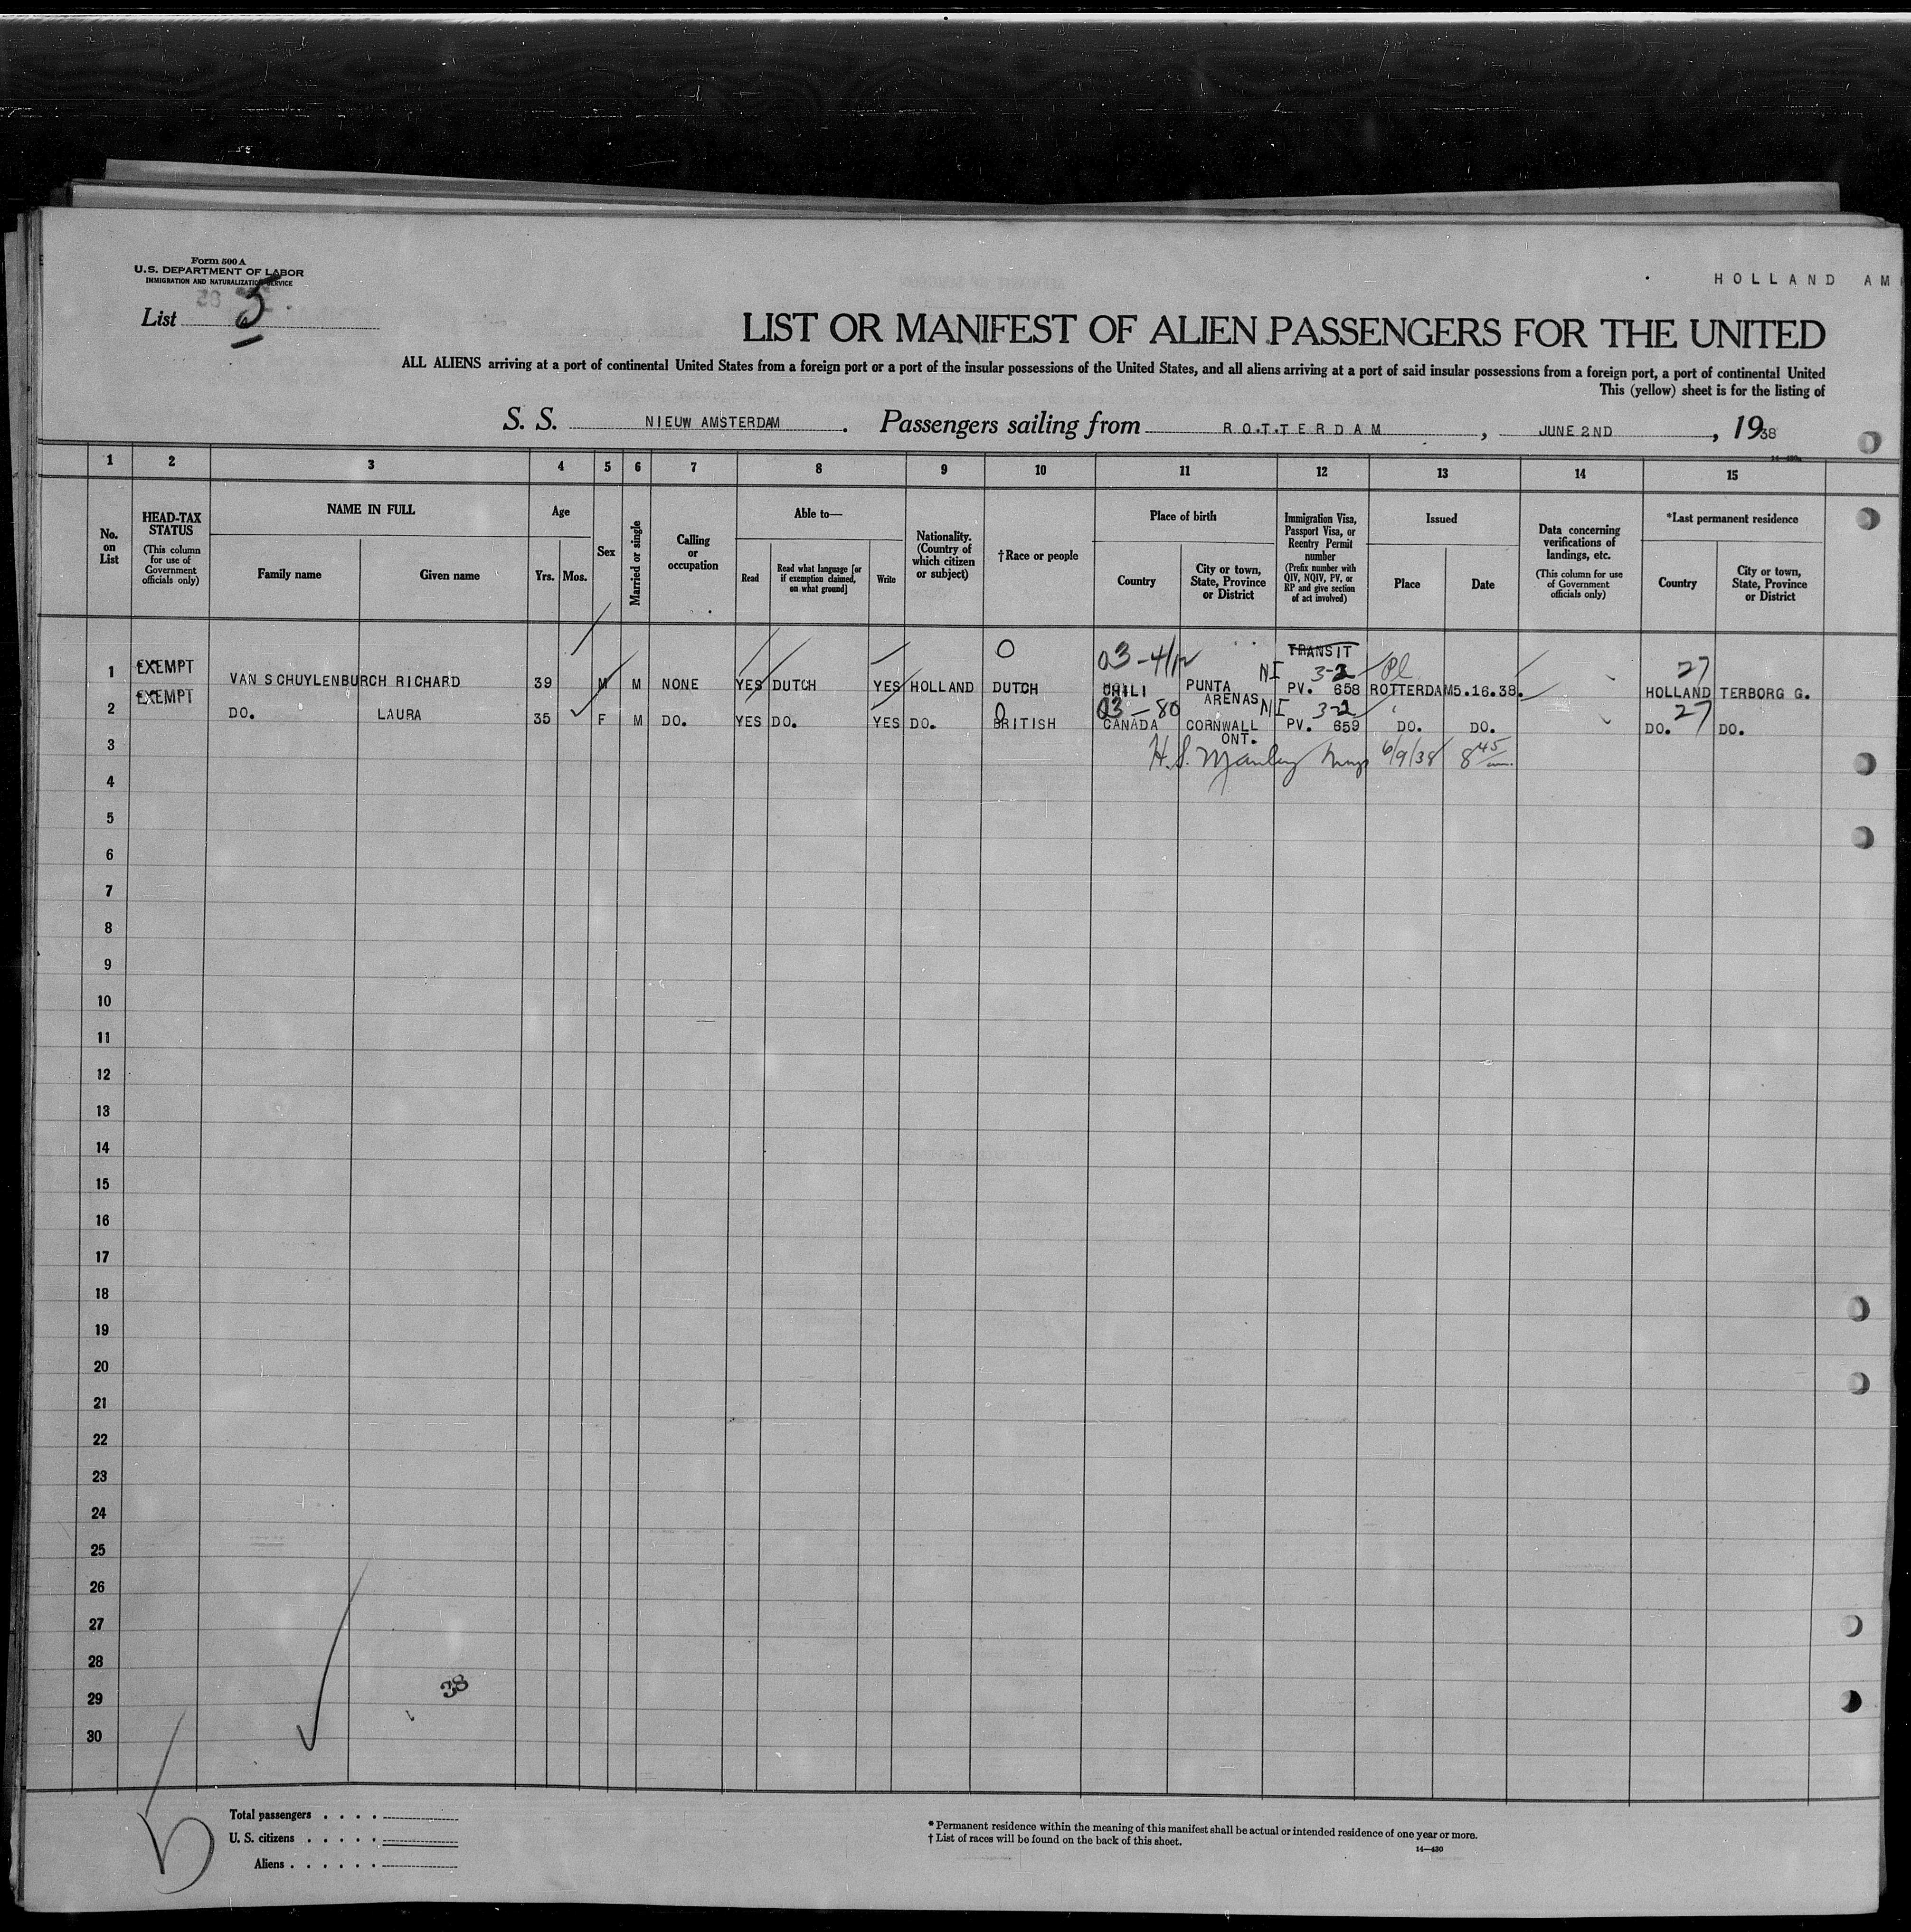 Form 500 A
U.S. DEPARTMENT OF LABOR
IMMIGRATION AND NATURALIZATION SERVICE
HOLLAND AM
List 5
LIST OR MANIFEST OF ALIEN PASSENGERS FOR THE UNITED
ALL ALIENS arriving at a port of continental United States from a foreign port or a port of the insular possessions of the United States, and all aliens arriving at a port of said insular possessions from a foreign port, a port of continental United
This (yellow) sheet is for the listing of
S. S. NIEUW AMSTERDAM. Passengers sailing from ROTTERDAM, JUNE 2ND, 1938
1 2 3 4 5 6 7 8 9 10 11 12 13 14 15
No. on List
HEAD-TAX STATUS
(This column for use of Government officials only)
NAME IN FULL
Family name
Given name
Age
Yrs.
Mos.
Sex
Married or single
Calling or occupation
Able to—
Read
Read what language [or if exemption claimed, on what ground]
Write
Nationality. (Country of which citizen or subject)
†Race or people
Place of birth
Country
City or town, State, Province or District
Immigration Visa, Passport Visa, or Reentry Permit number
(Prefix number with QIV, NQIV, PV, or RP and give section of act involved)
Issued
Place
Date
Data concerning verifications of landings, etc.
(This column for use of Government officials only)
*Last permanent residence
Country
City or town, State, Province or District
TRANSIT
03-4/12 NI 3-2 Pl 27
1 EXEMPT VAN SCHUYLENBURCH RICHARD 39 M M NONE YES DUTCH YES HOLLAND DUTCH CHILI PUNTA ARENAS PV. 658 ROTTERDAM 5.16.38. HOLLAND TERBORG G.
03-80 NI 3-2 27
2 EXEMPT DO. LAURA 35 F M DO. YES DO. YES DO. BRITISH CANADA CORNWALL ONT. PV. 659 DO. DO. DO. DO.
3
H. S. Manley 6/9/38 8 45
4
5
6
7
8
9
10
11
12
13
14
15
16
17
18
19
20
21
22
23
24
25
26
27
28
29
30
38
Total passengers . . . .
U. S. citizens . . . . .
Aliens . . . . . .
* Permanent residence within the meaning of this manifest shall be actual or intended residence of one year or more.
† List of races will be found on the back of this sheet.
14—430